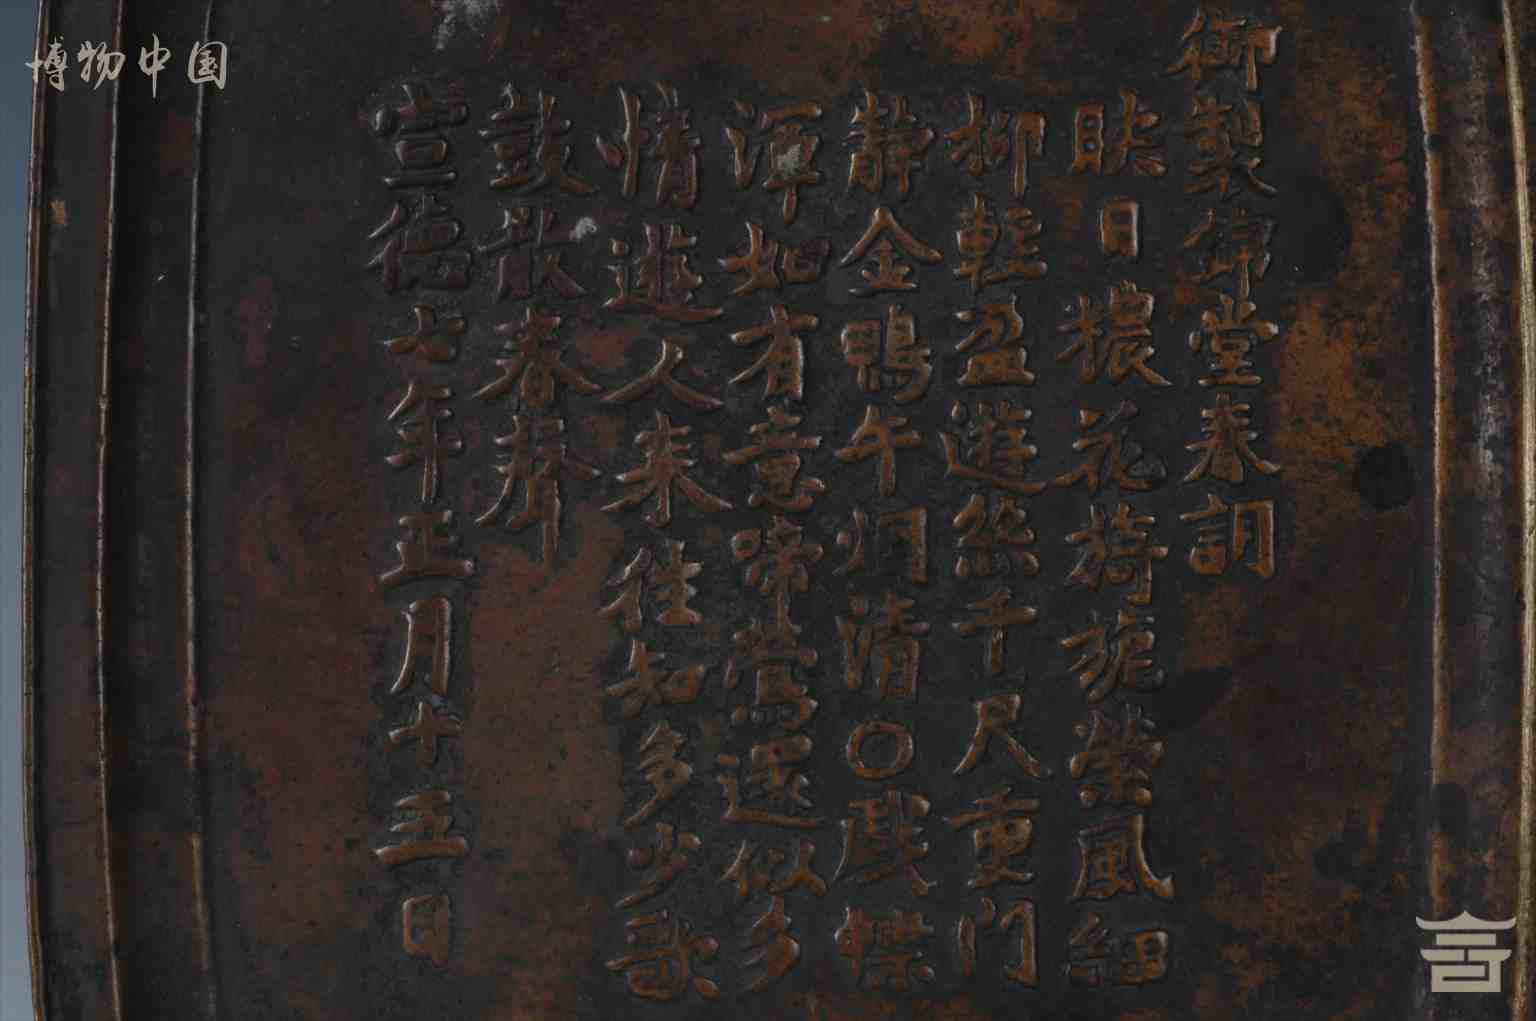 御製錦堂春詞
映日穠花旖旎縈風細
柳輕盈遊絲千尺重門
静金鴨午烟清〇戲蝶
渾如有意啼鶯還似多
情遊人来往知多少歌
鼓散春聲
宣德七年正月十五日
博物中国